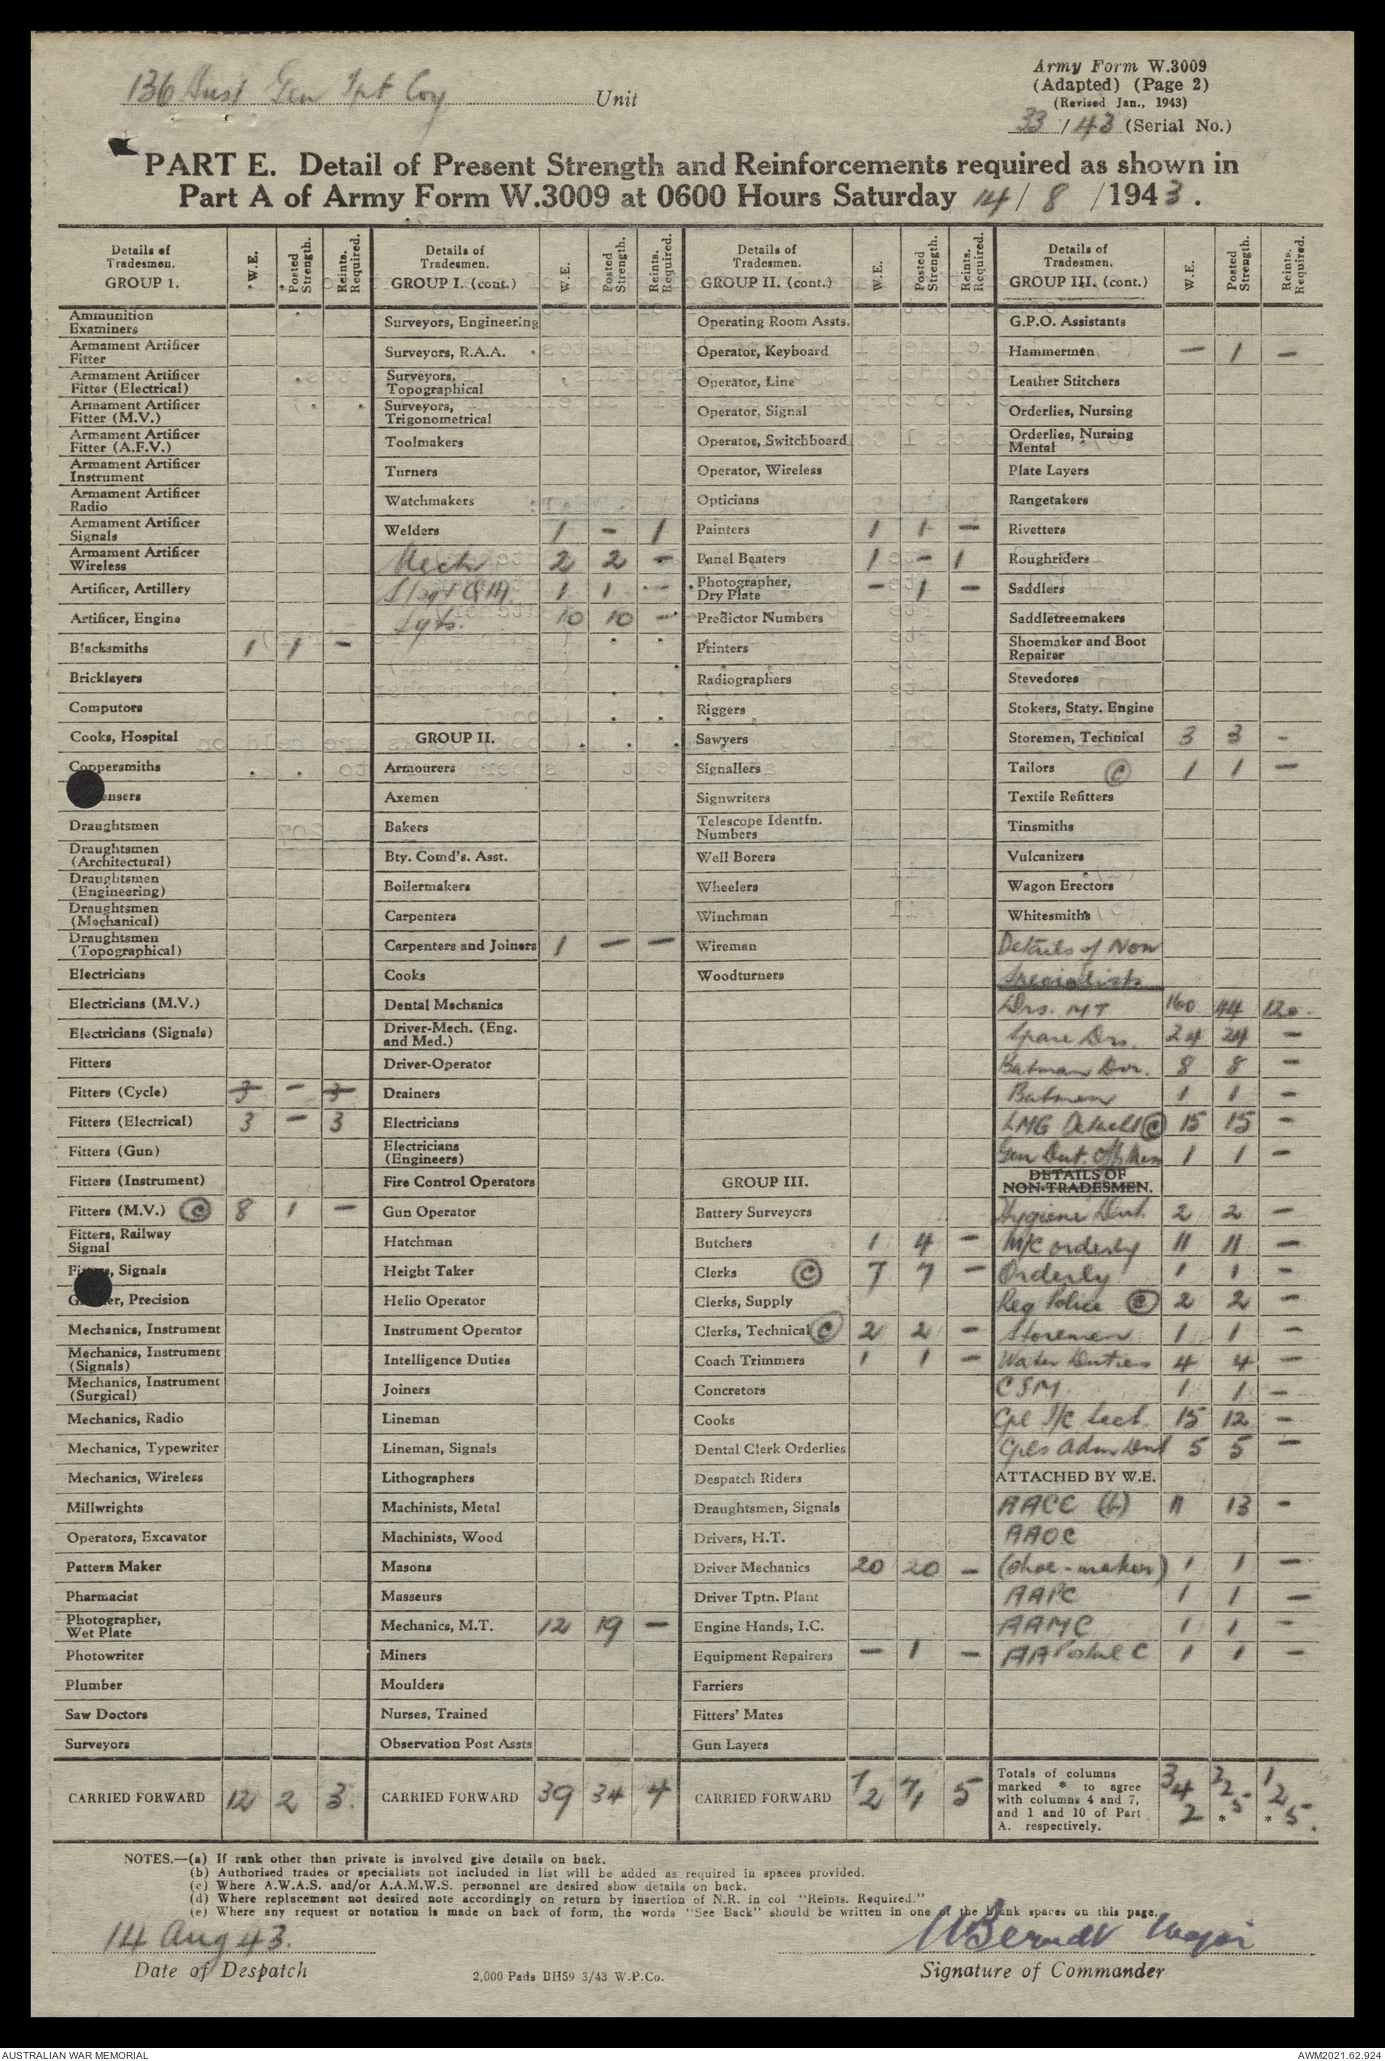 136 Aust Gen Tpt Coy Unit
Army Form W.3009
(Adapted) (Page 2)
(Revised Jan., 1943)
33 / 43 (Serial No.)
PART E. Detail of Present Strength and Reinforcements required as shown in
Part A of Army Form W.3009 at 0600 Hours Saturday 14 / 8 / 1943.
Details of Tradesmen. GROUP 1. *W.E. *Posted Strength. Reints. Required.
Ammunition Examiners
Armament Artificer Fitter
Armament Artificer Fitter (Electrical)
Armament Artificer Fitter (M.V.)
Armament Artificer Fitter (A.F.V.)
Armament Artificer Instrument
Armament Artificer Radio
Armament Artificer Signals
Armament Artificer Wireless
Artificer, Artillery
Artificer, Engine
Blacksmiths 1 1 —
Bricklayers
Computors
Cooks, Hospital
Coppersmiths
ensers
Draughtsmen
Draughtsmen (Architectural)
Draughtsmen (Engineering)
Draughtsmen (Mechanical)
Draughtsmen (Topographical)
Electricians
Electricians (M.V.)
Electricians (Signals)
Fitters
Fitters (Cycle) 3 — 3
Fitters (Electrical) 3 — 3
Fitters (Gun)
Fitters (Instrument)
Fitters (M.V.) (C) 8 1 —
Fitters, Railway Signal
Fi s, Signals
G er, Precision
Mechanics, Instrument
Mechanics, Instrument (Signals)
Mechanics, Instrument (Surgical)
Mechanics, Radio
Mechanics, Typewriter
Mechanics, Wireless
Millwrights
Operators, Excavator
Pattern Maker
Pharmacist
Photographer, Wet Plate
Photowriter
Plumber
Saw Doctors
Surveyors
CARRIED FORWARD 12 2 3.
Details of Tradesmen. GROUP I. (cont.) W.E. Posted Strength. Reints. Required.
Surveyors, Engineering
Surveyors, R.A.A.
Surveyors, Topographical
Surveyors, Trigonometrical
Toolmakers
Turners
Watchmakers
Welders 1 — 1
Mech 2 2 —
S/Sgt QM. 1 1 —
Sgts. 10 10 —
GROUP II.
Armourers
Axemen
Bakers
Bty. Comd's. Asst.
Boilermakers
Carpenters
Carpenters and Joiners 1 — —
Cooks
Dental Mechanics
Driver-Mech. (Eng. and Med.)
Driver-Operator
Drainers
Electricians
Electricians (Engineers)
Fire Control Operators
Gun Operator
Hatchman
Height Taker
Helio Operator
Instrument Operator
Intelligence Duties
Joiners
Lineman
Lineman, Signals
Lithographers
Machinists, Metal
Machinists, Wood
Masons
Masseurs
Mechanics, M.T. 12 19 —
Miners
Moulders
Nurses, Trained
Observation Post Assts
CARRIED FORWARD 39 34 4
Details of Tradesmen. GROUP II. (cont.) W.E. Posted Strength. Reints. Required.
Operating Room Assts.
Operator, Keyboard
Operator, Line
Operator, Signal
Operator, Switchboard
Operator, Wireless
Opticians
Painters 1 1 —
Panel Beaters 1 — 1
Photographer, Dry Plate — 1 —
Predictor Numbers
Printers
Radiographers
Riggers
Sawyers
Signallers
Signwriters
Telescope Identfn. Numbers
Well Borers
Wheelers
Winchman
Wireman
Woodturners
GROUP III.
Battery Surveyors
Butchers 1 4 —
Clerks (C) 7 7 —
Clerks, Supply
Clerks, Technical (C) 2 2 —
Coach Trimmers 1 1 —
Concretors
Cooks
Dental Clerk Orderlies
Despatch Riders
Draughtsmen, Signals
Drivers, H.T.
Driver Mechanics 20 20 —
Driver Tptn. Plant
Engine Hands, I.C.
Equipment Repairers — 1 —
Farriers
Fitters' Mates
Gun Layers
CARRIED FORWARD 72 71 5
Details of Tradesmen. GROUP III. (cont.) W.E. Posted Strength. Reints. Required.
G.P.O. Assistants
Hammermen — 1 —
Leather Stitchers
Orderlies, Nursing
Orderlies, Nursing Mental
Plate Layers
Rangetakers
Rivetters
Roughriders
Saddlers
Saddletreemakers
Shoemaker and Boot Repairer
Stevedores
Stokers, Staty. Engine
Storemen, Technical 3 3 -
Tailors (C) 1 1 —
Textile Refitters
Tinsmiths
Vulcanizers
Wagon Erectors
Whitesmiths
Details of Non
Specialists
Drs. MT 160 44 120.
Spare Drs. 24 24 —
Batman Dvr. 8 8 —
Batmen 1 1 —
LMG Details (C) 15 15 —
Gen Dut. Off Mess 1 1 —
DETAILS OF NON-TRADESMEN.
Hygiene Dut. 2 2 —
M/C orderly 11 11 —
Orderly 1 1 —
Reg Police (C) 2 2 —
Storemen 1 1 —
Water Duties 4 4 —
CSM. 1 1 —
Cpl I/C Sect. 15 12 —
Cpls Adm Dut 5 5 —
ATTACHED BY W.E.
AACC (b) 11 13 —
AAOC
(shoe-maker) 1 1 —
AAPC 1 1 —
AAMC 1 1 —
AA Postal C 1 1 —
Totals of columns marked * to agree with columns 4 and 7, and 1 and 10 of Part A. respectively. 342 225 * 125 *
NOTES.—(a) If rank other than private is involved give details on back.
(b) Authorised trades or specialists not included in list will be added as required in spaces provided.
(c) Where A.W.A.S. and/or A.A.M.W.S. personnel are desired show details on back.
(d) Where replacement not desired note accordingly on return by insertion of N.R. in col "Reints. Required."
(e) Where any request or notation is made on back of form, the words "See Back" should be written in one of the blank spaces on this page.
14 Aug 43.
Date of Despatch
2,000 Pads BH59 3/43 W.P.Co.
WBerndt Major
Signature of Commander
AUSTRALIAN WAR MEMORIAL
AWM2021.62.924